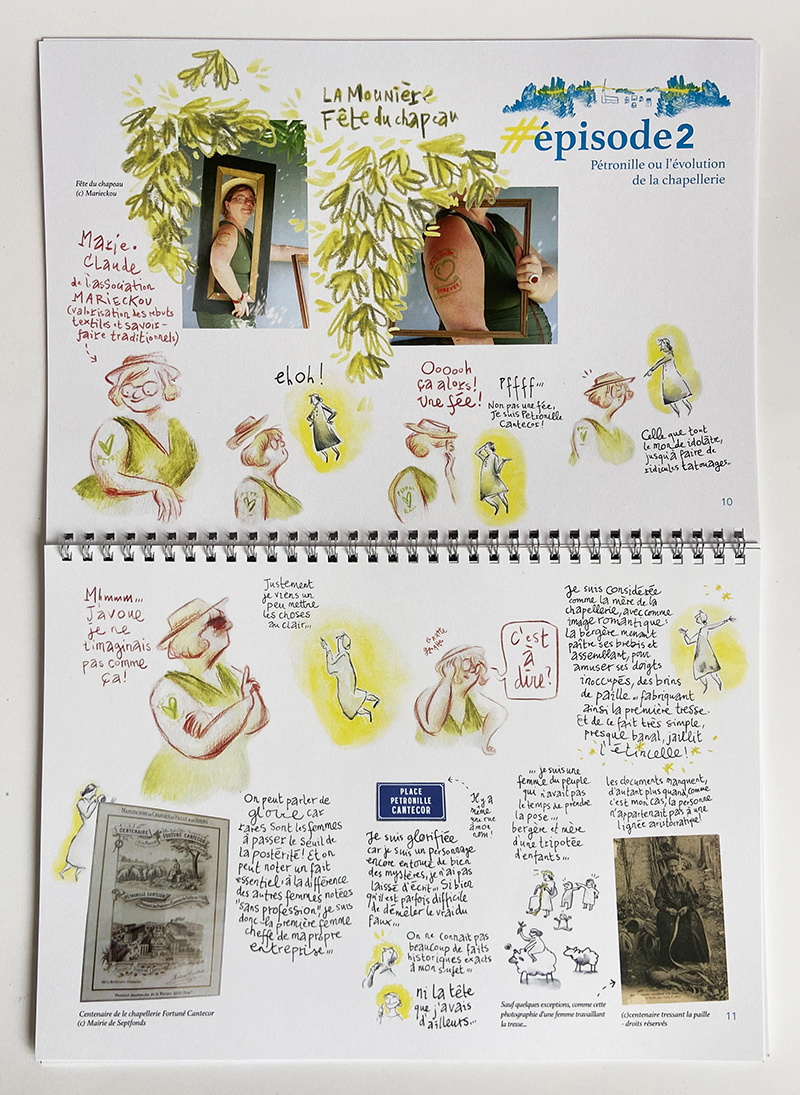 LA MOUNIÈRE
Fête du chapeau
#épisode2
Pétronille ou l'évolution
de la chapellerie
Fête du chapeau
(c) Marieckou
Marie-
Claude
de l'association
MARIECKOU
(valorisation des rebuts
textiles et savoir-
faire traditionnels)
ehoh!
Oooooh
ça alors!
Une fée!
Pffff...
Non pas une fée,
Je suis Petronille
Cantecor!
Celle que tout
le monde idolâtre,
jusqu'à faire de
ridicules tatouages..
10
Mhmmm...
J'avoue
je ne
t'imaginais
pas comme
ça!
Justement
je viens un
peu mettre
les choses
au clair...
C'est
à
dire?
Je suis considérée
comme la mère de la
chapellerie, avec comme
image romantique:
la bergère menant
paître ses brebis et
assemblant, pour
amuser ses doigts
inoccupés, des brins
de paille .. fabriquant
ainsi la première tresse.
Et de ce fait très simple,
presque banal, jaillit
l'étincelle!
MANUFACTURE DE CHAPEAUX DE PAILLE
CENTENAIRE
FORTUNÉ CANTECOR
PÉTRONILLE CANTECOR
Centenaire de le chapellerie Fortuné Cantecor
(c) Mairie de Septfonds
On peut parler de
gloire car
rares sont les femmes
à passer le seuil de
la postérité! Et on
peut noter un fait
essentiel: à la différence
des autres femmes notées
"sans profession", je suis
donc la première femme
cheffe de ma propre
entreprise...
PLACE
PETRONILLE
CANTECOR
Il y a
même
une rue
à mon
nom!
Je suis glorifiée
car je suis un personnage
encore entouré de bien
des mystères, je n'ai pas
laissé d'écrit... Si bien
qu'il est parfois difficile
de démêler le vrai du
faux...
On ne connait pas
beaucoup de faits
historiques exacts
à mon sujet...
ni la tête
que j'avais
d'ailleurs...
... je suis une
femme du peuple
qui n'avait pas
le temps de prendre
la pose...
bergère et mère
d'une tripotée
d'enfants...
les documents manquent,
d'autant plus quand, comme
c'est mon cas, la personne
n'appartenait pas à une
lignée aristocratique!
Sauf quelques exceptions, comme cette
photographie d'une femme travaillant
la tresse...
(c)centenaire tressant la paille
- droits réservés
11